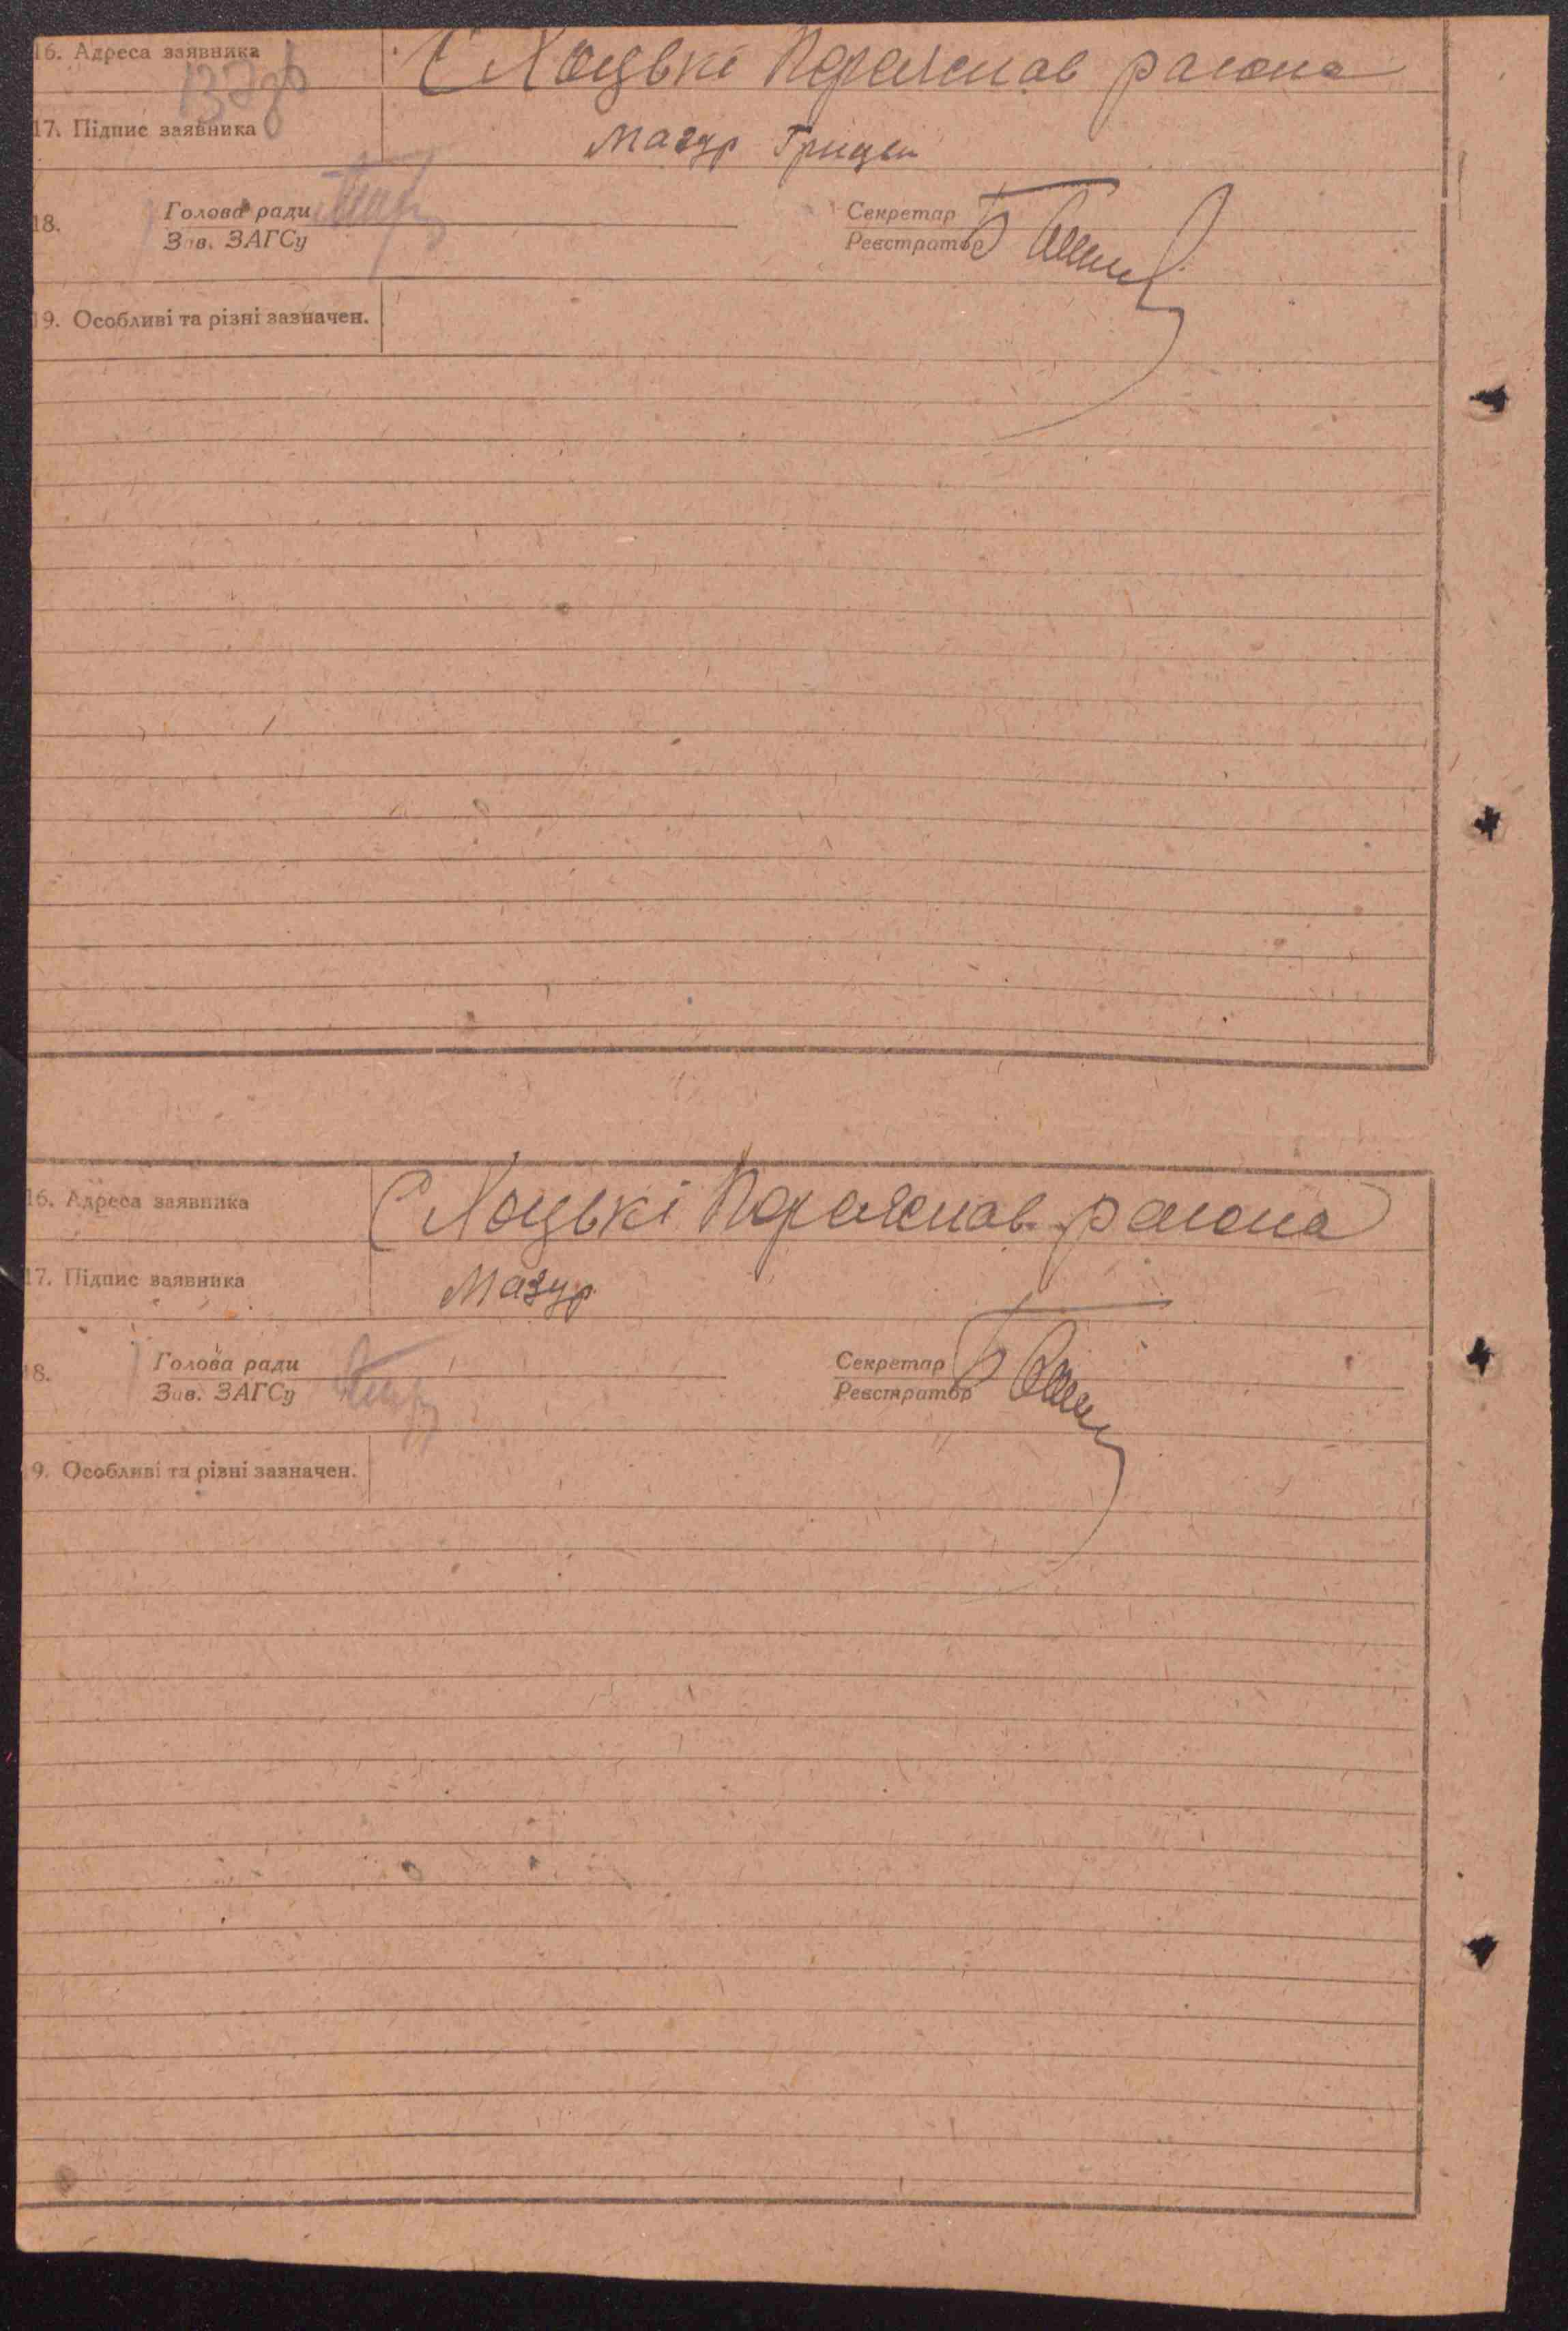 16. Адреса заявника С Хоцькі Переяслав района
17. Підпис заявника Мазур Грицьк
18. Голова ради Секретар
Зав. ЗАГСу Реєстратор
19. Особливі та різні зазначен.
16. Адреса заявника С Хоцькі Переяслав. района
17. Підпис заявника Мазур
18. Голова ради Секретар
Зав. ЗАГСу Реєстратор
19. Особливі та різні зазначен.